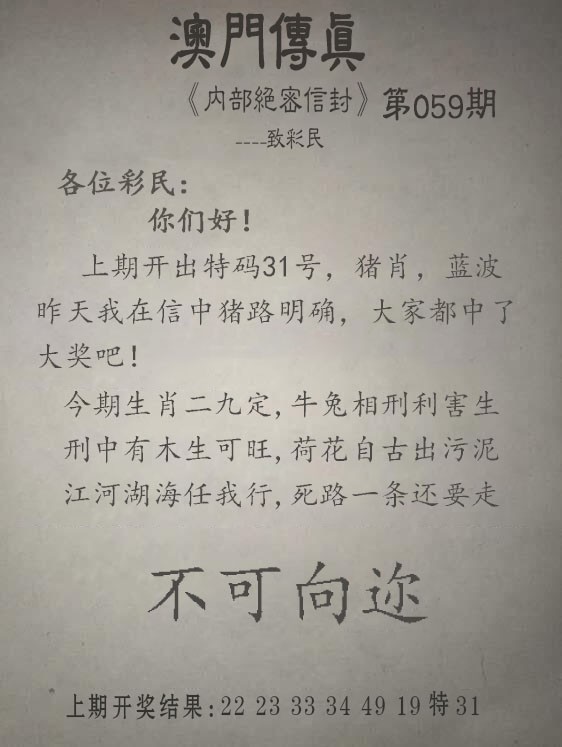 澳門傳眞
《内部絕密信封》第059期
----致彩民
各位彩民:
你们好!
上期开出特码31号，猪肖，蓝波
昨天我在信中猪路明确，大家都中了
大奖吧!
今期生肖二九定,牛兔相刑利害生
刑中有木生可旺,荷花自古出污泥
江河湖海任我行,死路一条还要走
不可向迩
上期开奖结果:22 23 33 34 49 19特31